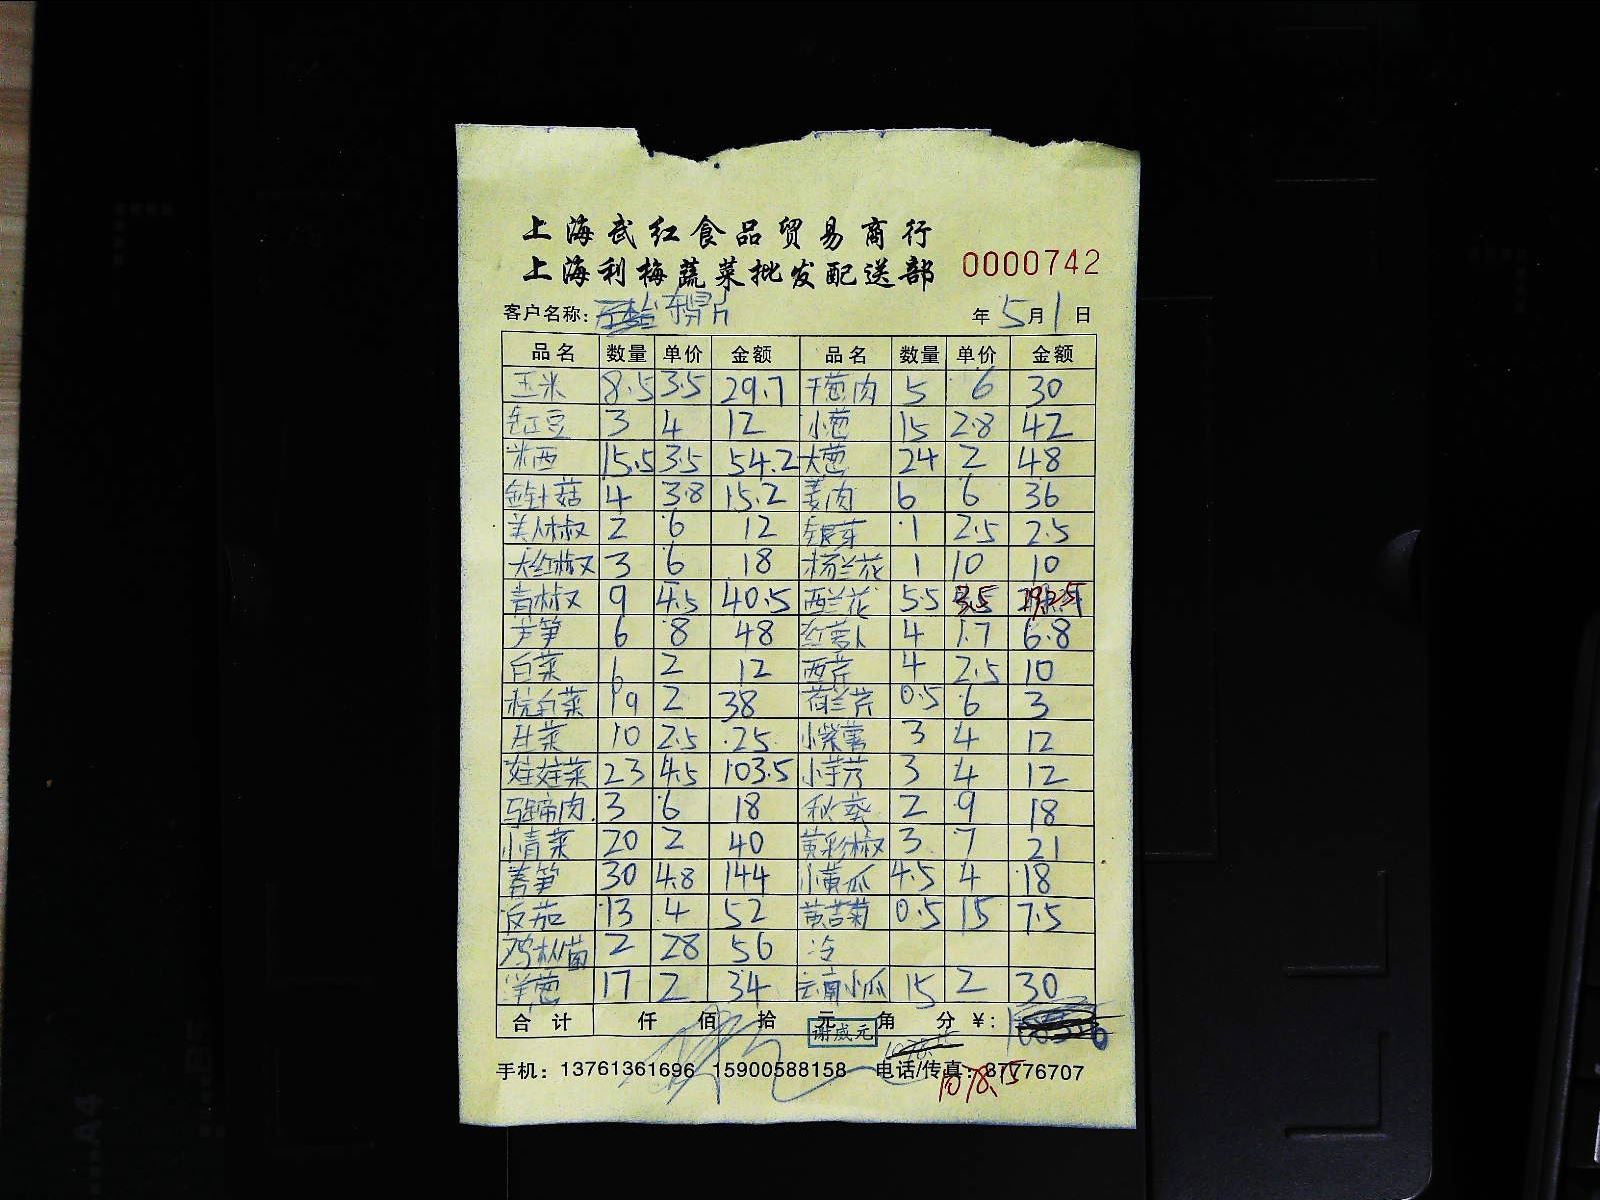 上海武红食品贸易商行
上海利梅蔬菜批发配送部 0000742
客户名称: 东鼎 年 5 月 1 日
品名 数量 单价 金额 品名 数量 单价 金额
玉米 8.5 3.5 29.7 干葱肉 5 6 30
红豆 3 4 12 小葱 15 2.8 42
米西 15.5 3.5 54.2 大葱 24 2 48
金针菇 4 3.8 15.2 姜肉 6 6 36
美人椒 2 6 12 银芽 1 2.5 2.5
大红椒 3 6 18 杨兰花 1 10 10
青椒 9 4.5 40.5 西兰花 5.5 3.5 19.25
芦笋 6 8 48 红萝卜 4 1.7 6.8
白菜 6 2 12 西芹 4 2.5 10
杭白菜 19 2 38 荷兰芹 0.5 6 3
生菜 10 2.5 25 小紫薯 3 4 12
娃娃菜 23 4.5 103.5 小芋艿 3 4 12
马蹄肉 3 6 18 秋葵 2 9 18
小青菜 20 2 40 黄彩椒 3 7 21
莴笋 30 4.8 144 小黄瓜 4.5 4 18
反茄 13 4 52 黄苦菊 0.5 15 7.5
鸡枞菌 2 28 56 冷
洋葱 17 2 34 云南小瓜 15 2 30
合计 仟 佰 拾 元 角 分 ¥:
谢威元
手机: 13761361696 15900588158 电话/传真: 87776707
1078.75